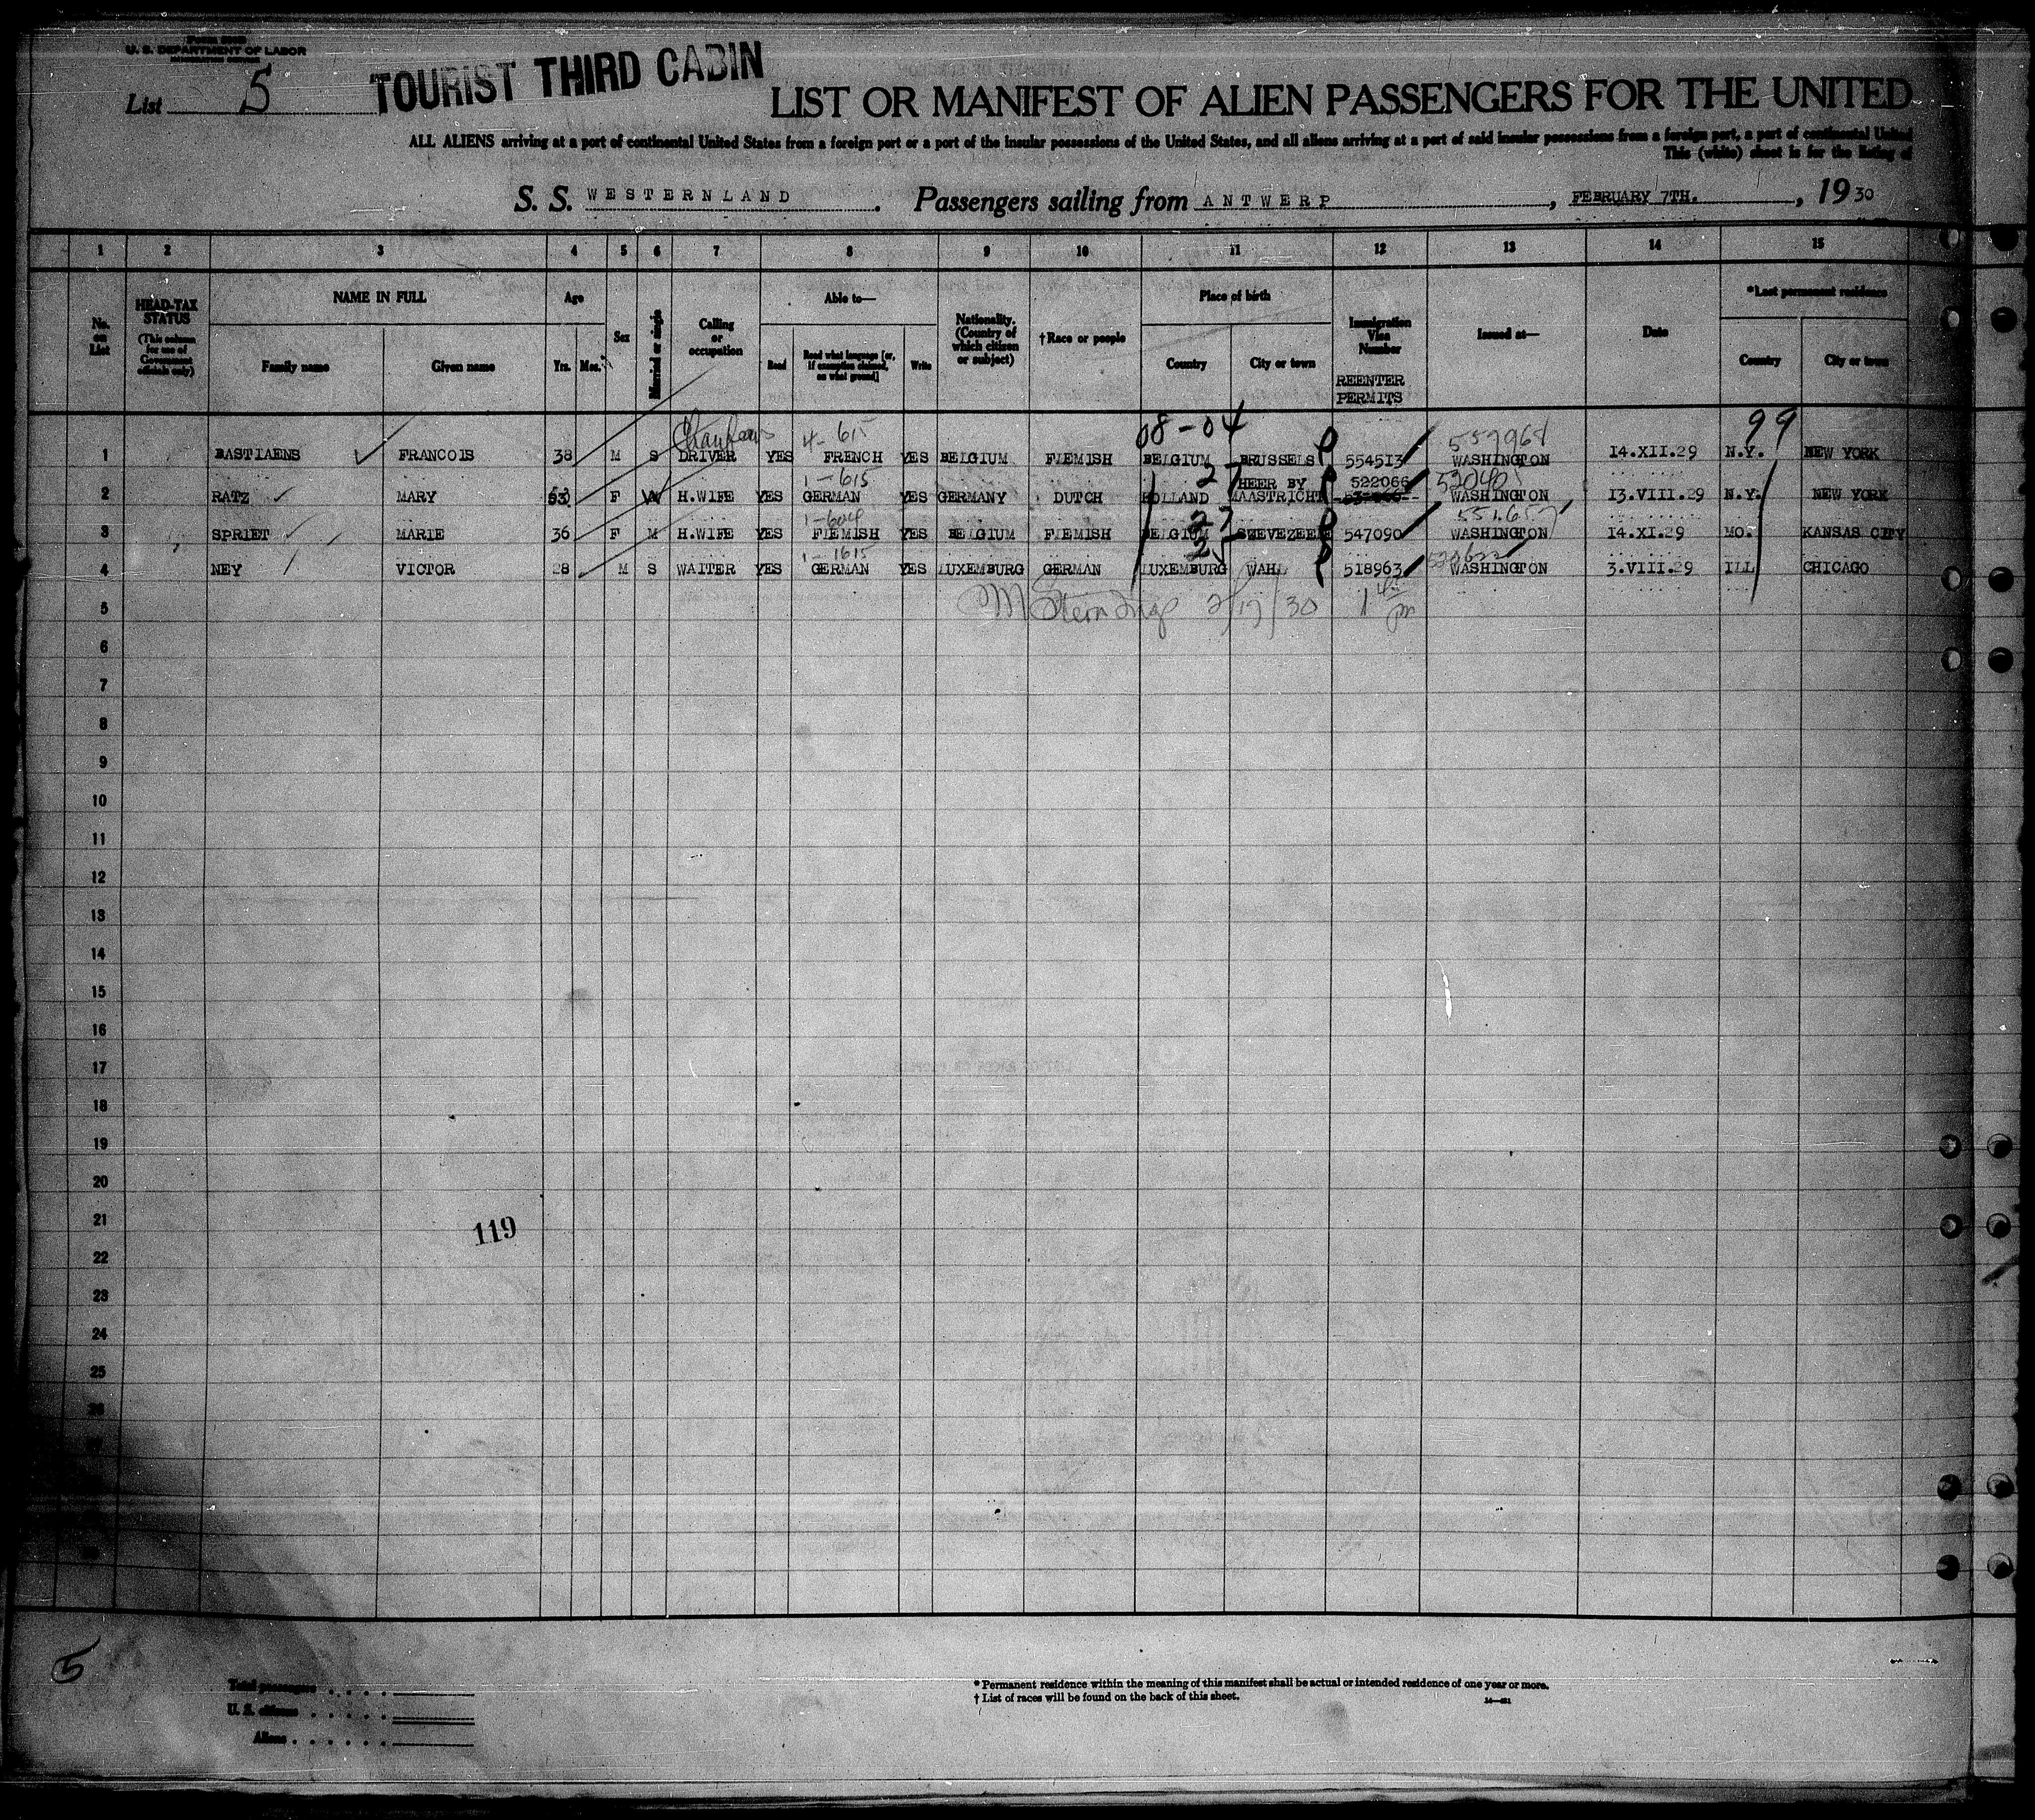 U. S. DEPARTMENT OF LABOR
List 5
TOURIST THIRD CABIN
LIST OR MANIFEST OF ALIEN PASSENGERS FOR THE UNITED
ALL ALIENS arriving at a port of continental United States from a foreign port or a port of the insular possessions of the United States, and all aliens arriving at a port of said insular possessions from a foreign port, a port of continental United
This (white) sheet is for the listing of
S. S. WESTERNLAND. Passengers sailing from ANTWERP, FEBRUARY 7TH., 19 30
1 2 3 4 5 6 7 8 9 10 11 12 13 14 15
No. on List
HEAD-TAX STATUS (This column for use of Government officials only)
NAME IN FULL
Family name
Given name
Age
Yrs.
Mos.
Sex
Married or single
Calling or occupation
Able to—
Read
Read what language [or, if exemption claimed, on what ground]
Write
Nationality. (Country of which citizen or subject)
†Race or people
Place of birth
Country
City or town
Immigration Visa Number
REENTER PERMITS
Issued at—
Date
*Last permanent residence
Country
City or town
4-615 08-04 99
1 BASTIAENS FRANCOIS 38 M S DRIVER YES FRENCH YES BELGIUM FLEMISH BELGIUM BRUSSELS 554513 WASHINGTON 14.XII.29 N.Y. NEW YORK
1-615 27 HEER BY 522066
2 RATZ MARY 53 F W H.WIFE YES GERMAN YES GERMANY DUTCH HOLLAND MAASTRICHT WASHINGTON 13.VIII.29 N.Y. NEW YORK
1-604 27 551657
3 SPRIET MARIE 36 F M H.WIFE YES FLEMISH YES BELGIUM FLEMISH BELGIUM 547090 WASHINGTON 14.XI.29 MO. KANSAS CITY
1-1615
4 NEY VICTOR 28 M S WAITER YES GERMAN YES LUXEMBURG GERMAN LUXEMBURG WAHL 518963 WASHINGTON 3.VIII.29 ILL CHICAGO
5 M Stern Insp 2/17/30
6
7
8
9
10
11
12
13
14
15
16
17
18
19
20
21
119
22
23
24
25
26
5
Total passengers
U. S. citizens
Aliens
* Permanent residence within the meaning of this manifest shall be actual or intended residence of one year or more.
† List of races will be found on the back of this sheet.